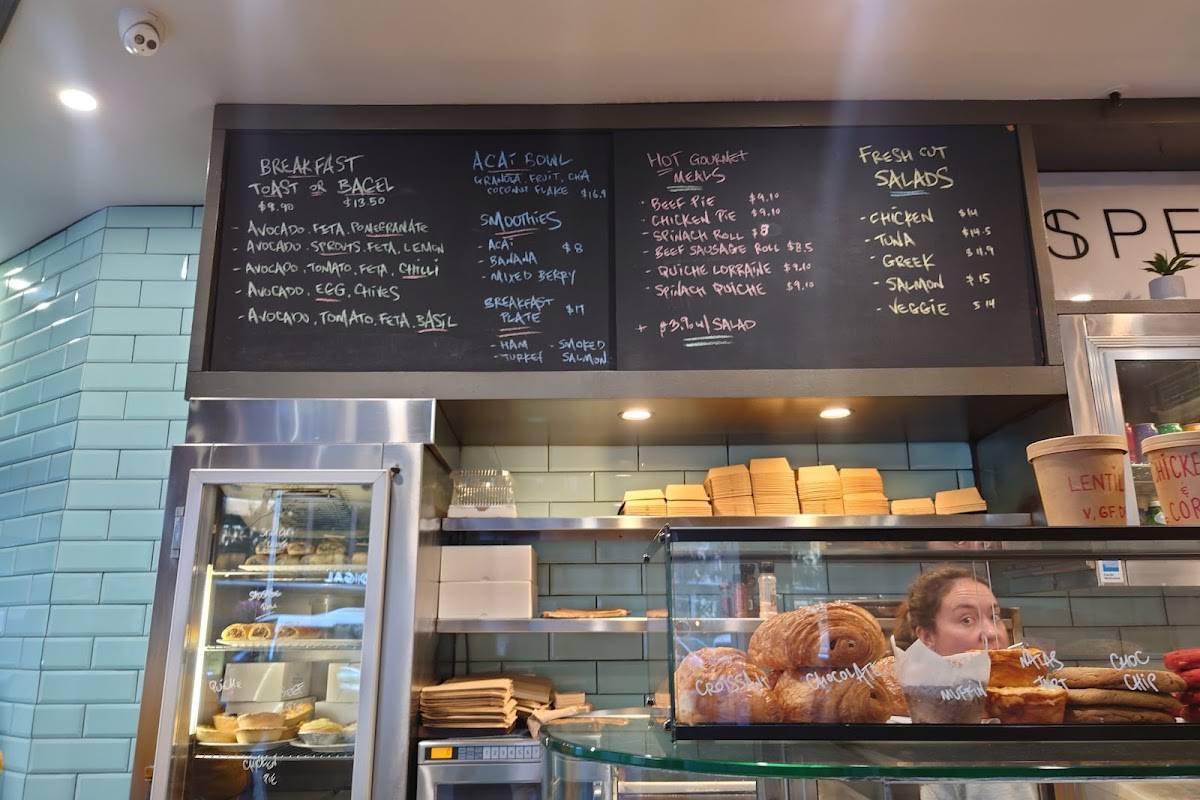 BREAKFAST
TOAST OR BAGEL
$9.90 $13.50
- AVOCADO, FETA, POMEGRANATE
- AVOCADO, SPROUTS, FETA, LEMON
- AVOCADO, TOMATO, FETA, CHILLI
- AVOCADO, EGG, CHIVES
- AVOCADO, TOMATO, FETA, BASIL
ACAI BOWL
GRANOLA, FRUIT, CHIA
COCONUT FLAKE $16.9
SMOOTHIES
- ACAI
- BANANA $8
- MIXED BERRY
BREAKFAST
PLATE $17
- HAM - SMOKED
- TURKEY SALMON
HOT GOURMET
MEALS
- BEEF PIE $9.10
- CHICKEN PIE $9.10
- SPINACH ROLL $8
BEEF SAUSAGE ROLL $8.5
- QUICHE LORRAINE $9.10
- SPINACH QUICHE $9.10
+ $3.90 W/ SALAD
FRESH CUT
SALADS
- CHICKEN $14
- TUNA $14.5
- GREEK $11.9
- SALMON $15
- VEGGIE $14
SPE
LENTIL
V, GF, D
CHICKE
&
COR
QUICHE
BEEF
CHICKEN
PIE
CROISSANT
CHOCOLATE
MUFFIN
NATAS
TART
CHOC
CHIP